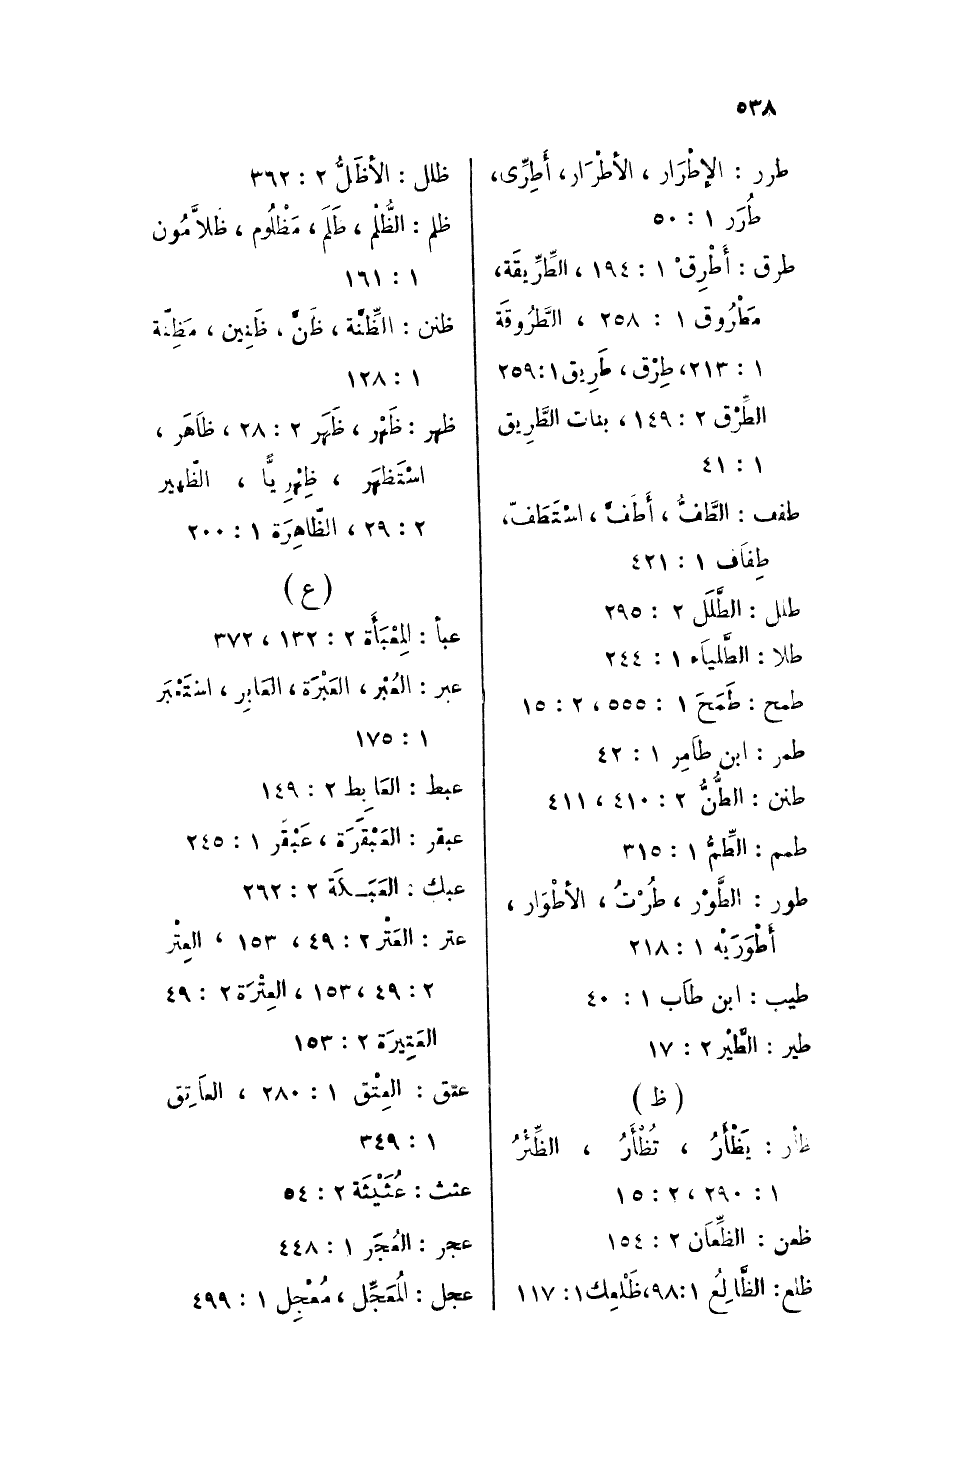 ٥٣٨
طرر : الإطْرَار ، الأطْرَار، أَطِرِّى،
طُرَر ١ : ٥٠
طرق : أَطْرِقْ ١ : ١٩٤ ، الطِّرِّيقَة،
مَطْرُوق ١ : ٢٥٨ ، الطَّرُوقَة
١ : ٢١٣، طِرْق ، طَرِيق ١ : ٢٥٩
الطِّرْق ٢ : ١٤٩ ، بنات الطَّرِيق
١ : ٤١
طفف : الطَّافُّ ، أَطَفَّ ، اسْتَطَفّ،
طِفَاف ١ : ٤٢١
طلل : الطَّلَل ٢ : ٢٩٥
طلا : الطَّلياَء ١ : ٢٤٤
طمح : طَمَحَ ١ : ٥٥٥ ، ٢ : ١٥
طمر : ابن طاَمِر ١ : ٤٢
طنن : الطُّنُّ ٢ : ٤١٠ ، ٤١١
طمم : الطِّمُّ ١ : ٣١٥
طور : الطَّوْر ، طُرْتُ ، الأطْوَار ،
أَطْوَرَيْه ١ : ٢١٨
طيب : ابن طاَب ١ : ٤٠
طير : الطَّيْر ٢ : ١٧
( ظ )
ظأر : يَظْأَرُ ، تُظْأَرُ ، الظِّئْرُ
١ : ٢٩٠ ، ٢ : ١٥
ظعن : الظِّعَان ٢ : ١٥٤
ظلع: الظَّالِعُ ١ :٩٨، ظَلْعِك ١ : ١١٧
ظلل : الأظَلُّ ٢ : ٣٦٢
ظلم : الظُّلْم ، ظَلَمَ ، مَظْلُوم ، ظَلاَّمُون
١ : ١٦١
ظنن : الظِّنَّة ، ظَنَّ ، ظَنِين ، مَظِنَّة
١ : ١٢٨
ظهر : ظَهْر ، ظَهَر ٢ : ٢٨ ، ظاَهَر ،
اسْتَظهَر ، ظِهْرِيًّا ، الظَّهِير
٢ : ٢٩ ، الظَّاهِرَة ١ : ٢٠٠
( ع )
عبأ : المِعْبَأَة ٢ : ١٣٢ ، ٣٧٢
عبر : العُبْر ، العَبْرَة ، العَابِر ، اسْتَعْبَر
١ : ١٧٥
عبط : العَابِط ٢ : ١٤٩
عبقر : العَبْقَرَة ، عَبْقَر ١ : ٢٤٥
عبك : العَبَـكَة ٢ : ٢٦٢
عتر : العَتْر ٢ : ٤٩ ، ١٥٣ ، العِتْر
٢ : ٤٩ ، ١٥٣ ، العِتْرَة ٢ : ٤٩
العَتِيرَة ٢ : ١٥٣
عتق : العِتْق ١ : ٢٨٠ ، العاَتِق
١ : ٣٤٩
عثث : عُثَيْثَة ٢ : ٥٤
عجر : العُجَر ١ : ٤٤٨
عجل : المُعَجِّل ، مُعْجِل ١ : ٤٩٩